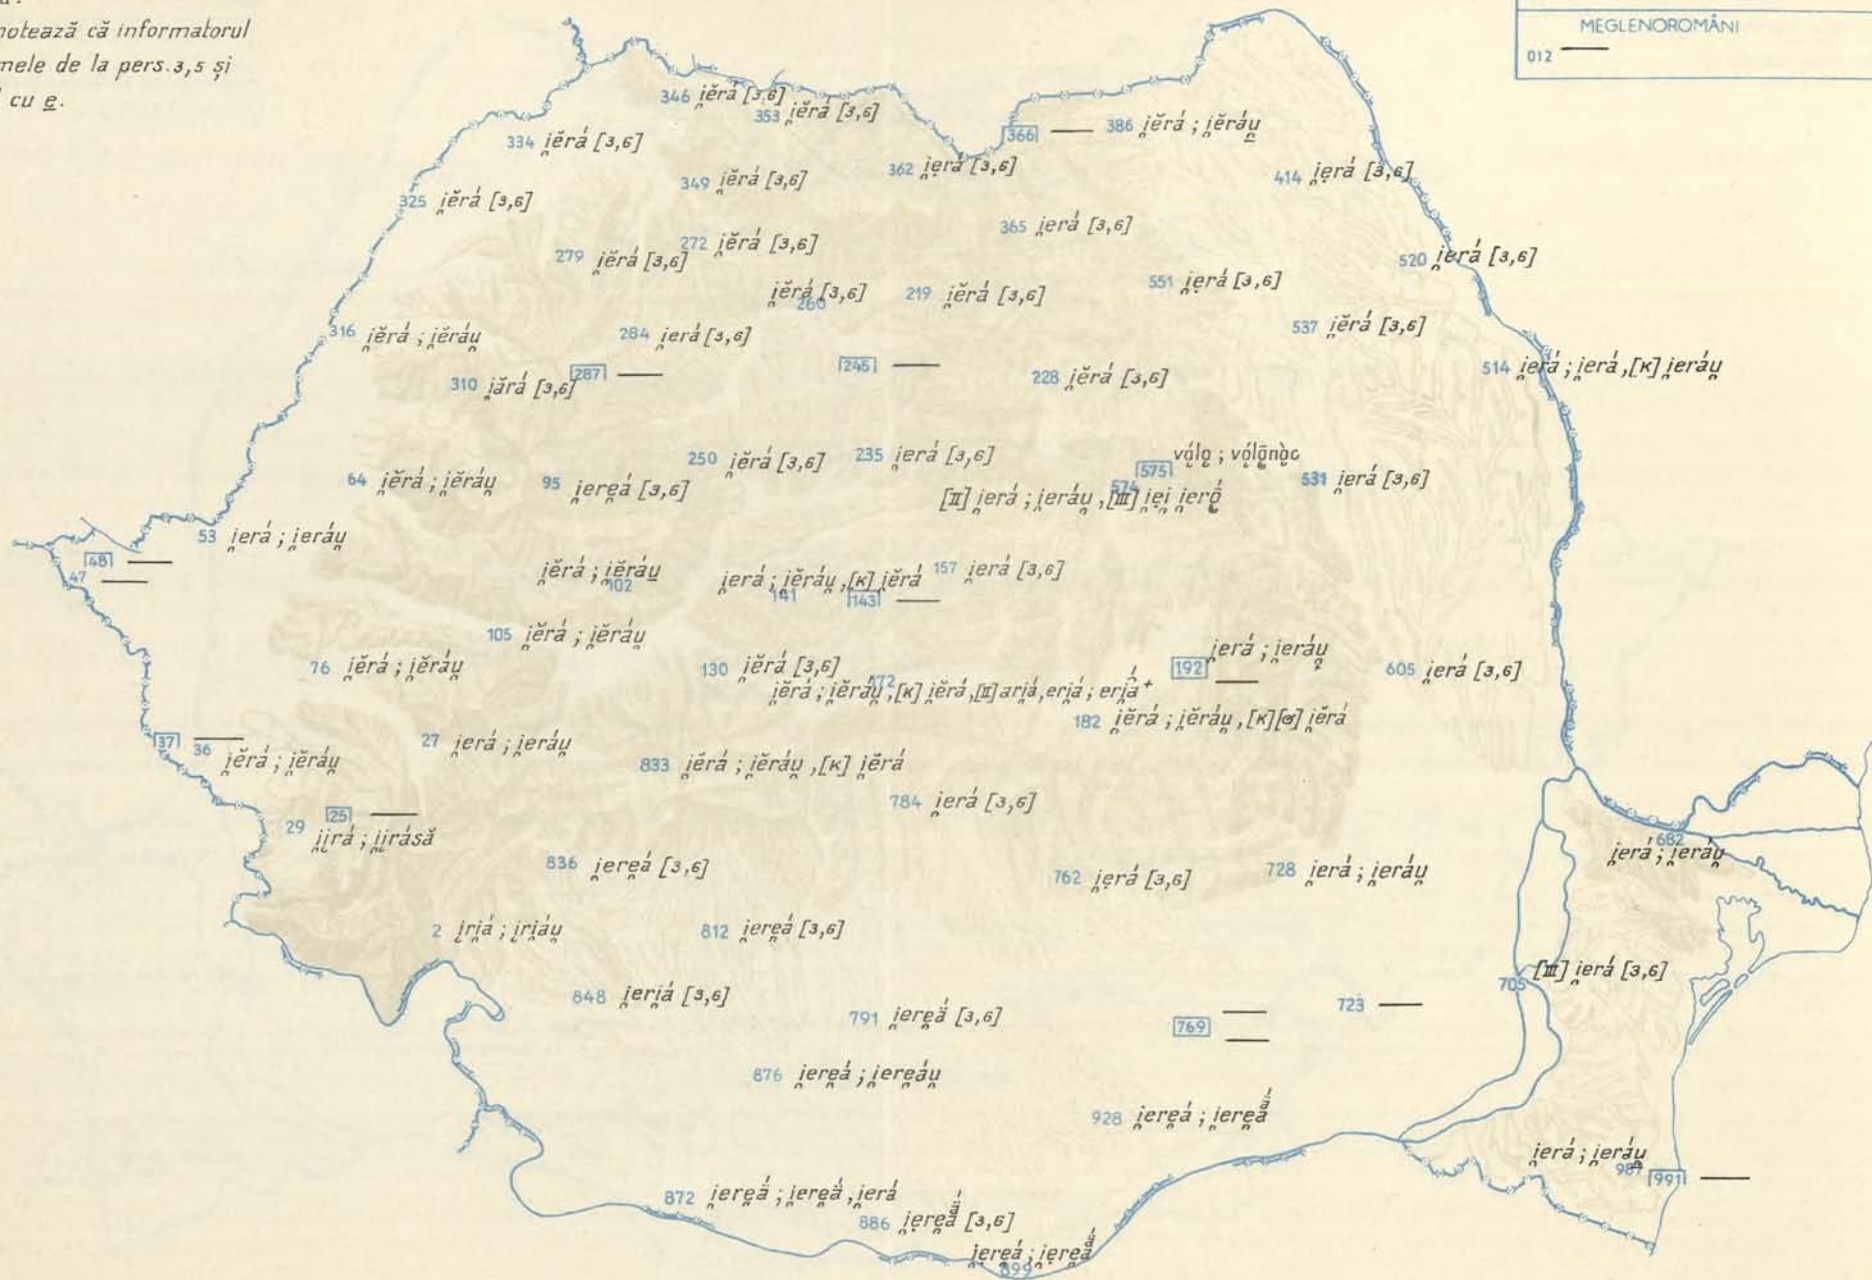 notează că informatorul
mele de la pers. 3,5 și
cu e.
MEGLENOROMÂNI
012 —
346 i̯ĕrá [3,6]
353 i̯ĕrá [3,6]
334 i̯ĕrá [3,6]
366 —
386 i̯ĕrá ; i̯ĕráu̯
362 i̯erá [3,6]
349 i̯ĕrá [3,6]
414 i̯erá [3,6]
325 i̯ĕrá [3,6]
365 i̯erá [3,6]
272 i̯ĕrá [3,6]
279 i̯ĕrá [3,6]
520 i̯erá [3,6]
551 i̯erá [3,6]
260 i̯ĕrá [3,6]
219 i̯ĕrá [3,6]
537 i̯ĕrá [3,6]
316 i̯ĕrá ; i̯ĕráu̯
284 i̯erá [3,6]
245 —
514 i̯erá ; i̯erá , [K] i̯eráu̯
287 —
310 i̯ărá [3,6]
228 i̯ĕrá [3,6]
250 i̯ĕrá [3,6]
235 i̯erá [3,6]
575
531 i̯erá [3,6]
64 i̯ĕrá ; i̯ĕráu̯
95 i̯ere̯á [3,6]
574 [II] i̯erá ; i̯eráu̯ , [III]
53 i̯erá ; i̯eráu̯
48 —
47 —
102 i̯ĕrá ; i̯ĕráu̯
141 i̯erá ; i̯ĕráu̯ , [K] i̯ĕrá
157 i̯erá [3,6]
143 —
105 i̯ĕrá ; i̯ĕráu̯
76 i̯ĕrá ; i̯ĕráu̯
130 i̯ĕrá [3,6]
172 i̯ĕrá ; i̯ĕráu̯ , [K] i̯ĕrá , [II] ari̯á , eri̯á ; eri̯á +
192 i̯erá ; i̯eráu̯
—
605 i̯erá [3,6]
182 i̯ĕrá ; i̯ĕráu̯ , [K] i̯ĕrá
37 —
36 i̯ĕrá ; i̯ĕráu̯
27 i̯erá ; i̯eráu̯
833 i̯ĕrá ; i̯ĕráu̯ , [K] i̯ĕrá
784 i̯erá [3,6]
25 —
29 i̯irá ; i̯irásă
682 i̯erá ; i̯eráu̯
836 i̯ere̯á [3,6]
762 i̯erá [3,6]
728 i̯erá ; i̯eráu̯
2 iri̯á ; iri̯áu̯
812 i̯ere̯á [3,6]
705 [III] i̯erá [3,6]
848 i̯eri̯á [3,6]
791 i̯ere̯ä́ [3,6]
769 —
—
723 —
876 i̯ere̯á ; i̯ere̯áu̯
928 i̯ere̯á ; i̯ere̯á
987 i̯erá ; i̯eráu̯
991 —
872 i̯ere̯ä́ ; i̯ere̯ä́ , i̯erá
886 i̯ere̯á [3,6]
899 i̯ere̯á ; i̯ere̯á